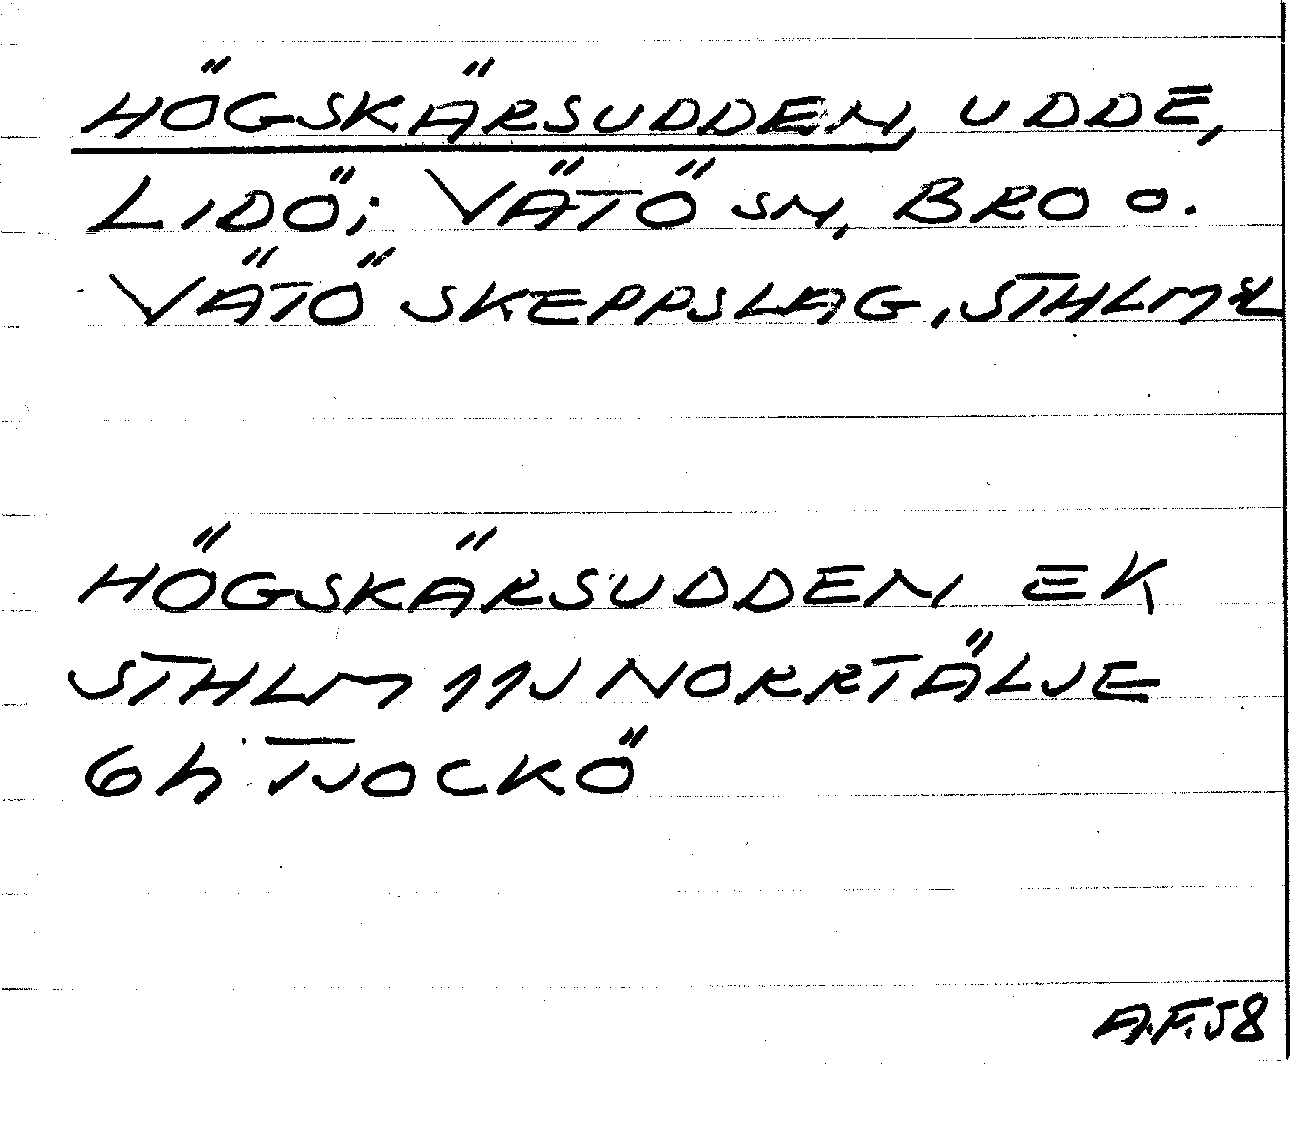 HÖGSKÄRSUDDEN, UDDE,
LIDÖ; VÄTÖ SN, BRO O.
VÄTÖ SKEPPSLAG, STHLMS L
HÖGSKÄRSUDDEN EK
STHLM 11J NORRTÄLJE
6h TJOCKÖ
A.F.58